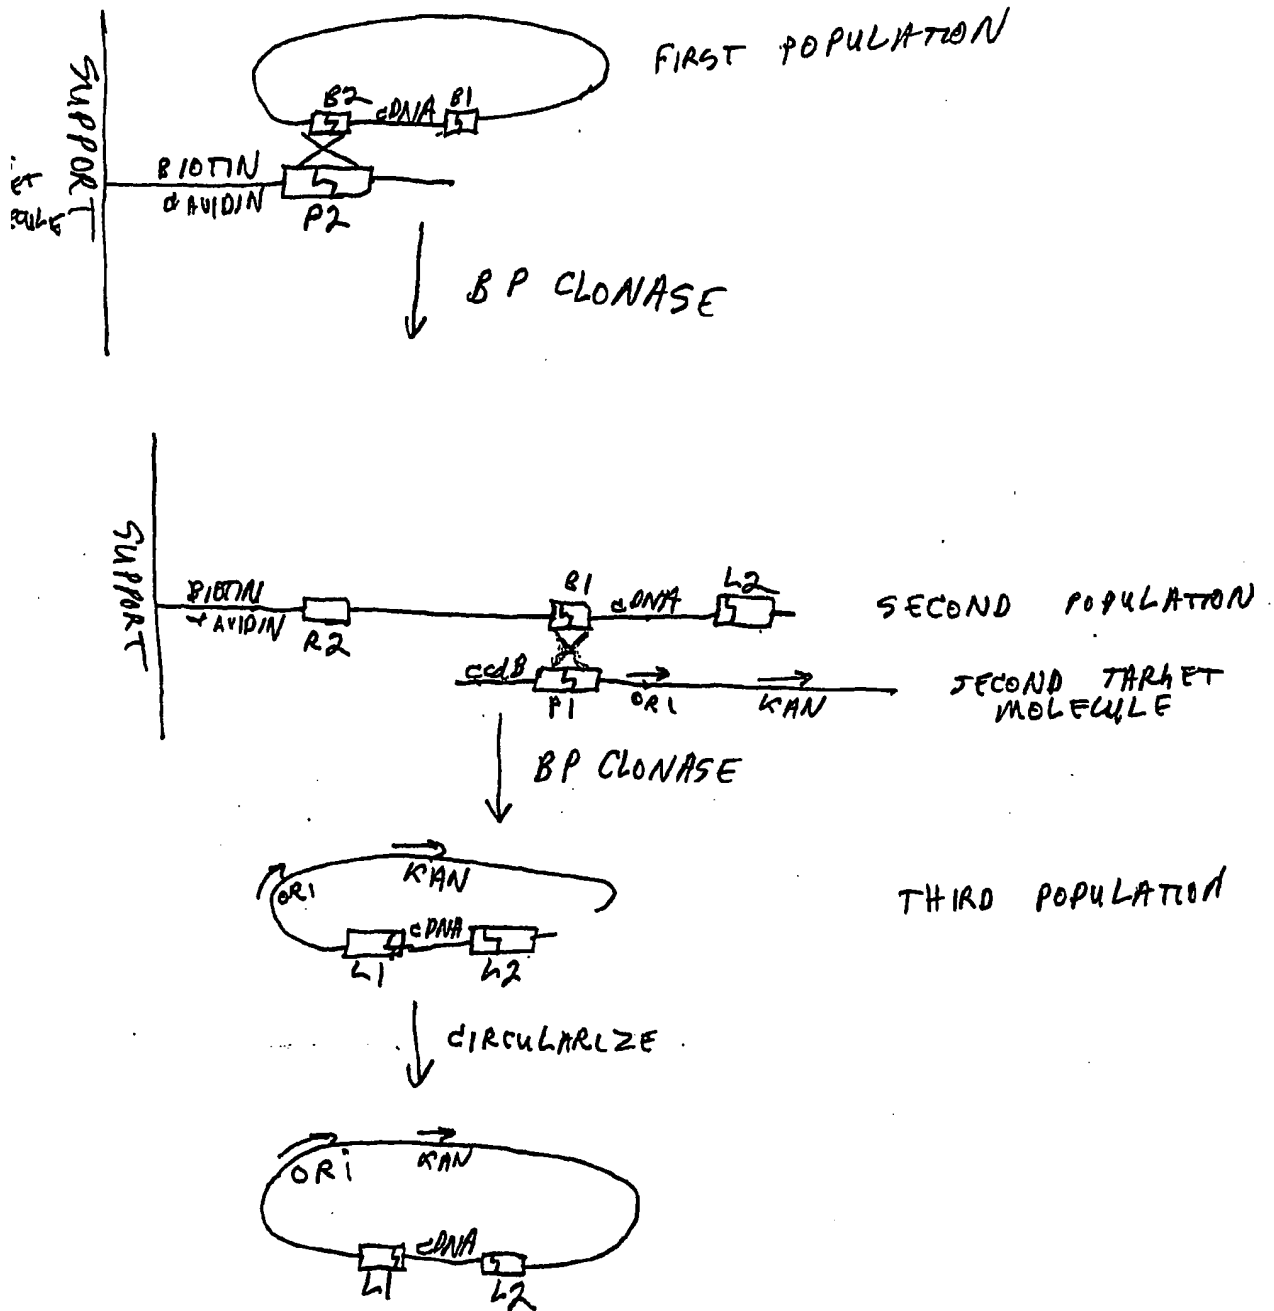 FIRST POPULATION
SUPPORT
B2
cDNA
B1
BIOTIN
AVIDIN
P2
BP CLONASE
SUPPORT
BIOTIN
AVIDIN
R2
B1
cDNA
L2
SECOND POPULATION
ccdB
P1
ORI
KAN
SECOND TARGET
MOLECULE
BP CLONASE
ORI
KAN
THIRD POPULATION
L1
cDNA
L2
CIRCULARIZE
ORi
KAN
L1
cDNA
L2